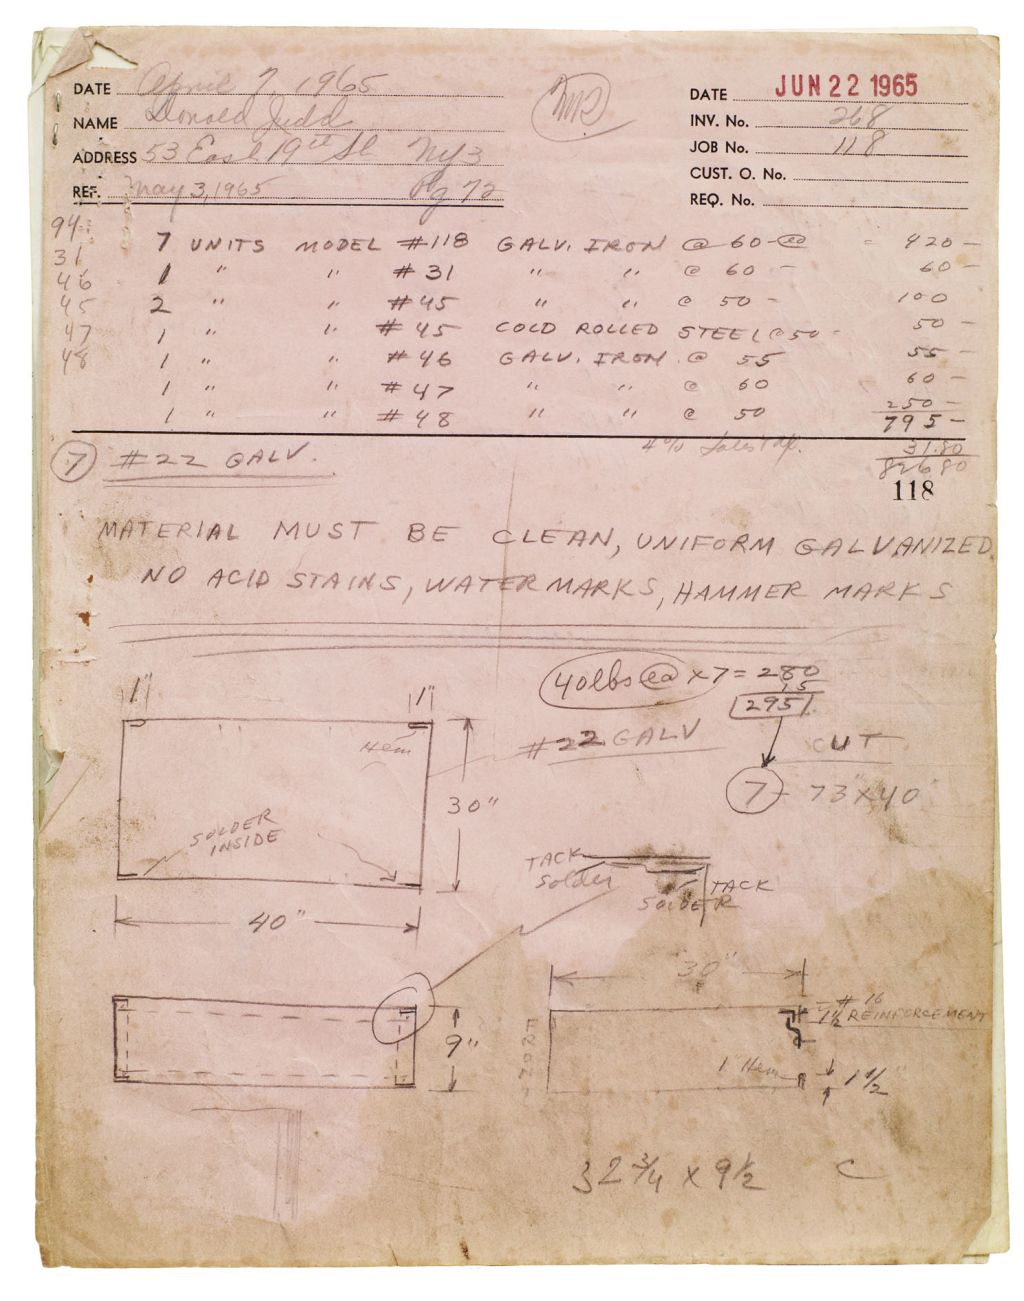 DATE April 7, 1965
NAME Donald Judd
ADDRESS 53 East 19th St NY3
REF. May 3, 1965 Pg 72
DATE JUN 22 1965
INV. No. 268
JOB No. 118
CUST. O. No.
REQ. No.
94
31
46
45
47
48
7 UNITS MODEL #118 GALV. IRON @ 60- ea = 420 -
1 " " #31 " " @ 60 - 60 -
2 " " #45 " " @ 50 - 100
1 " " #45 COLD ROLLED STEEL @ 50 - 50 -
1 " " #46 GALV. IRON @ 55 55 -
1 " " #47 " " @ 60 60 -
1 " " #48 " " @ 50 50 -
795 -
4% Sales Tax. 31.80
826.80
118
7 #22 GALV.
MATERIAL MUST BE CLEAN, UNIFORM GALVANIZED
NO ACID STAINS, WATERMARKS, HAMMER MARKS
40 lbs ea x 7 = 280
15
295
#22 GALV
CUT
7 - 73" x 40"
1" 1"
Hem
30"
SOLDER
INSIDE
40"
TACK
Solder
TACK
SOLDER
9"
30"
FRONT
- # 16
1 1/2 REINFORCEMENT
1" Hem
1 1/2"
32 3/4 x 9 1/2 C